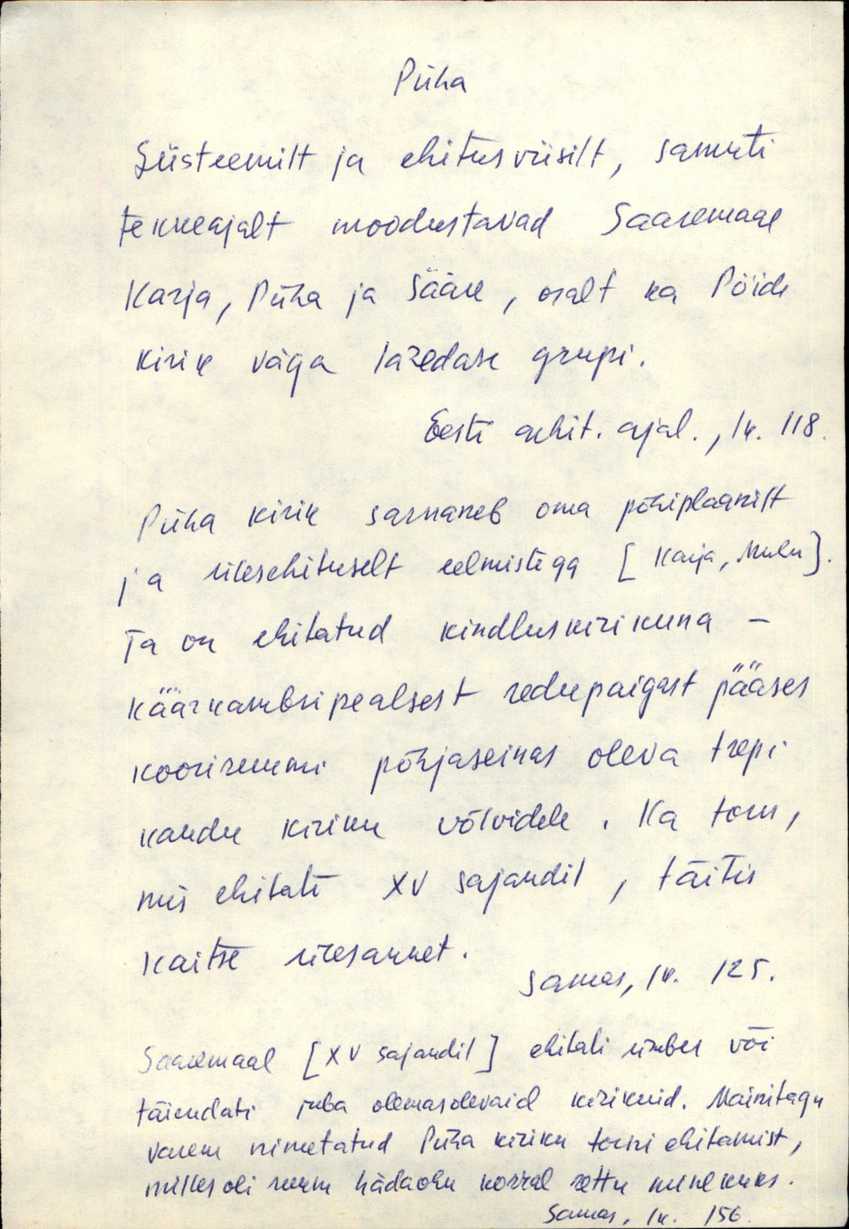 Püha
Süsteemilt ja ehitusviisilt, samuti
tekkeajalt moodustavad Saaremaal
Karja, Püha ja Sääre, osalt ka Pöide
kirik väga laredase grupi.
Eesti arhit. ajal., lk. 118.
Püha kirik sarnaneb oma põhiplaanilt
ja ülesehituselt eelmistega [Karja, Muhu].
Ta on ehitatud kindluskirikuna –
käärkambripealsest redupaigast pääses
kooriruumi põhjaseinas oleva trepi
kaudu kiriku võlvidele. Ka torn,
mis ehitati XV sajandil, täitis
kaitse ülesannet.
Samas, lk. 125.
Saaremaal [XV sajandil] ehitati ümber või
täiendati juba olemasolevaid kirikuid. Mainitagu
varem nimetatud Püha kiriku torni ehitamist,
milles oli ruum hädaohu korral
Samas, lk. 156.